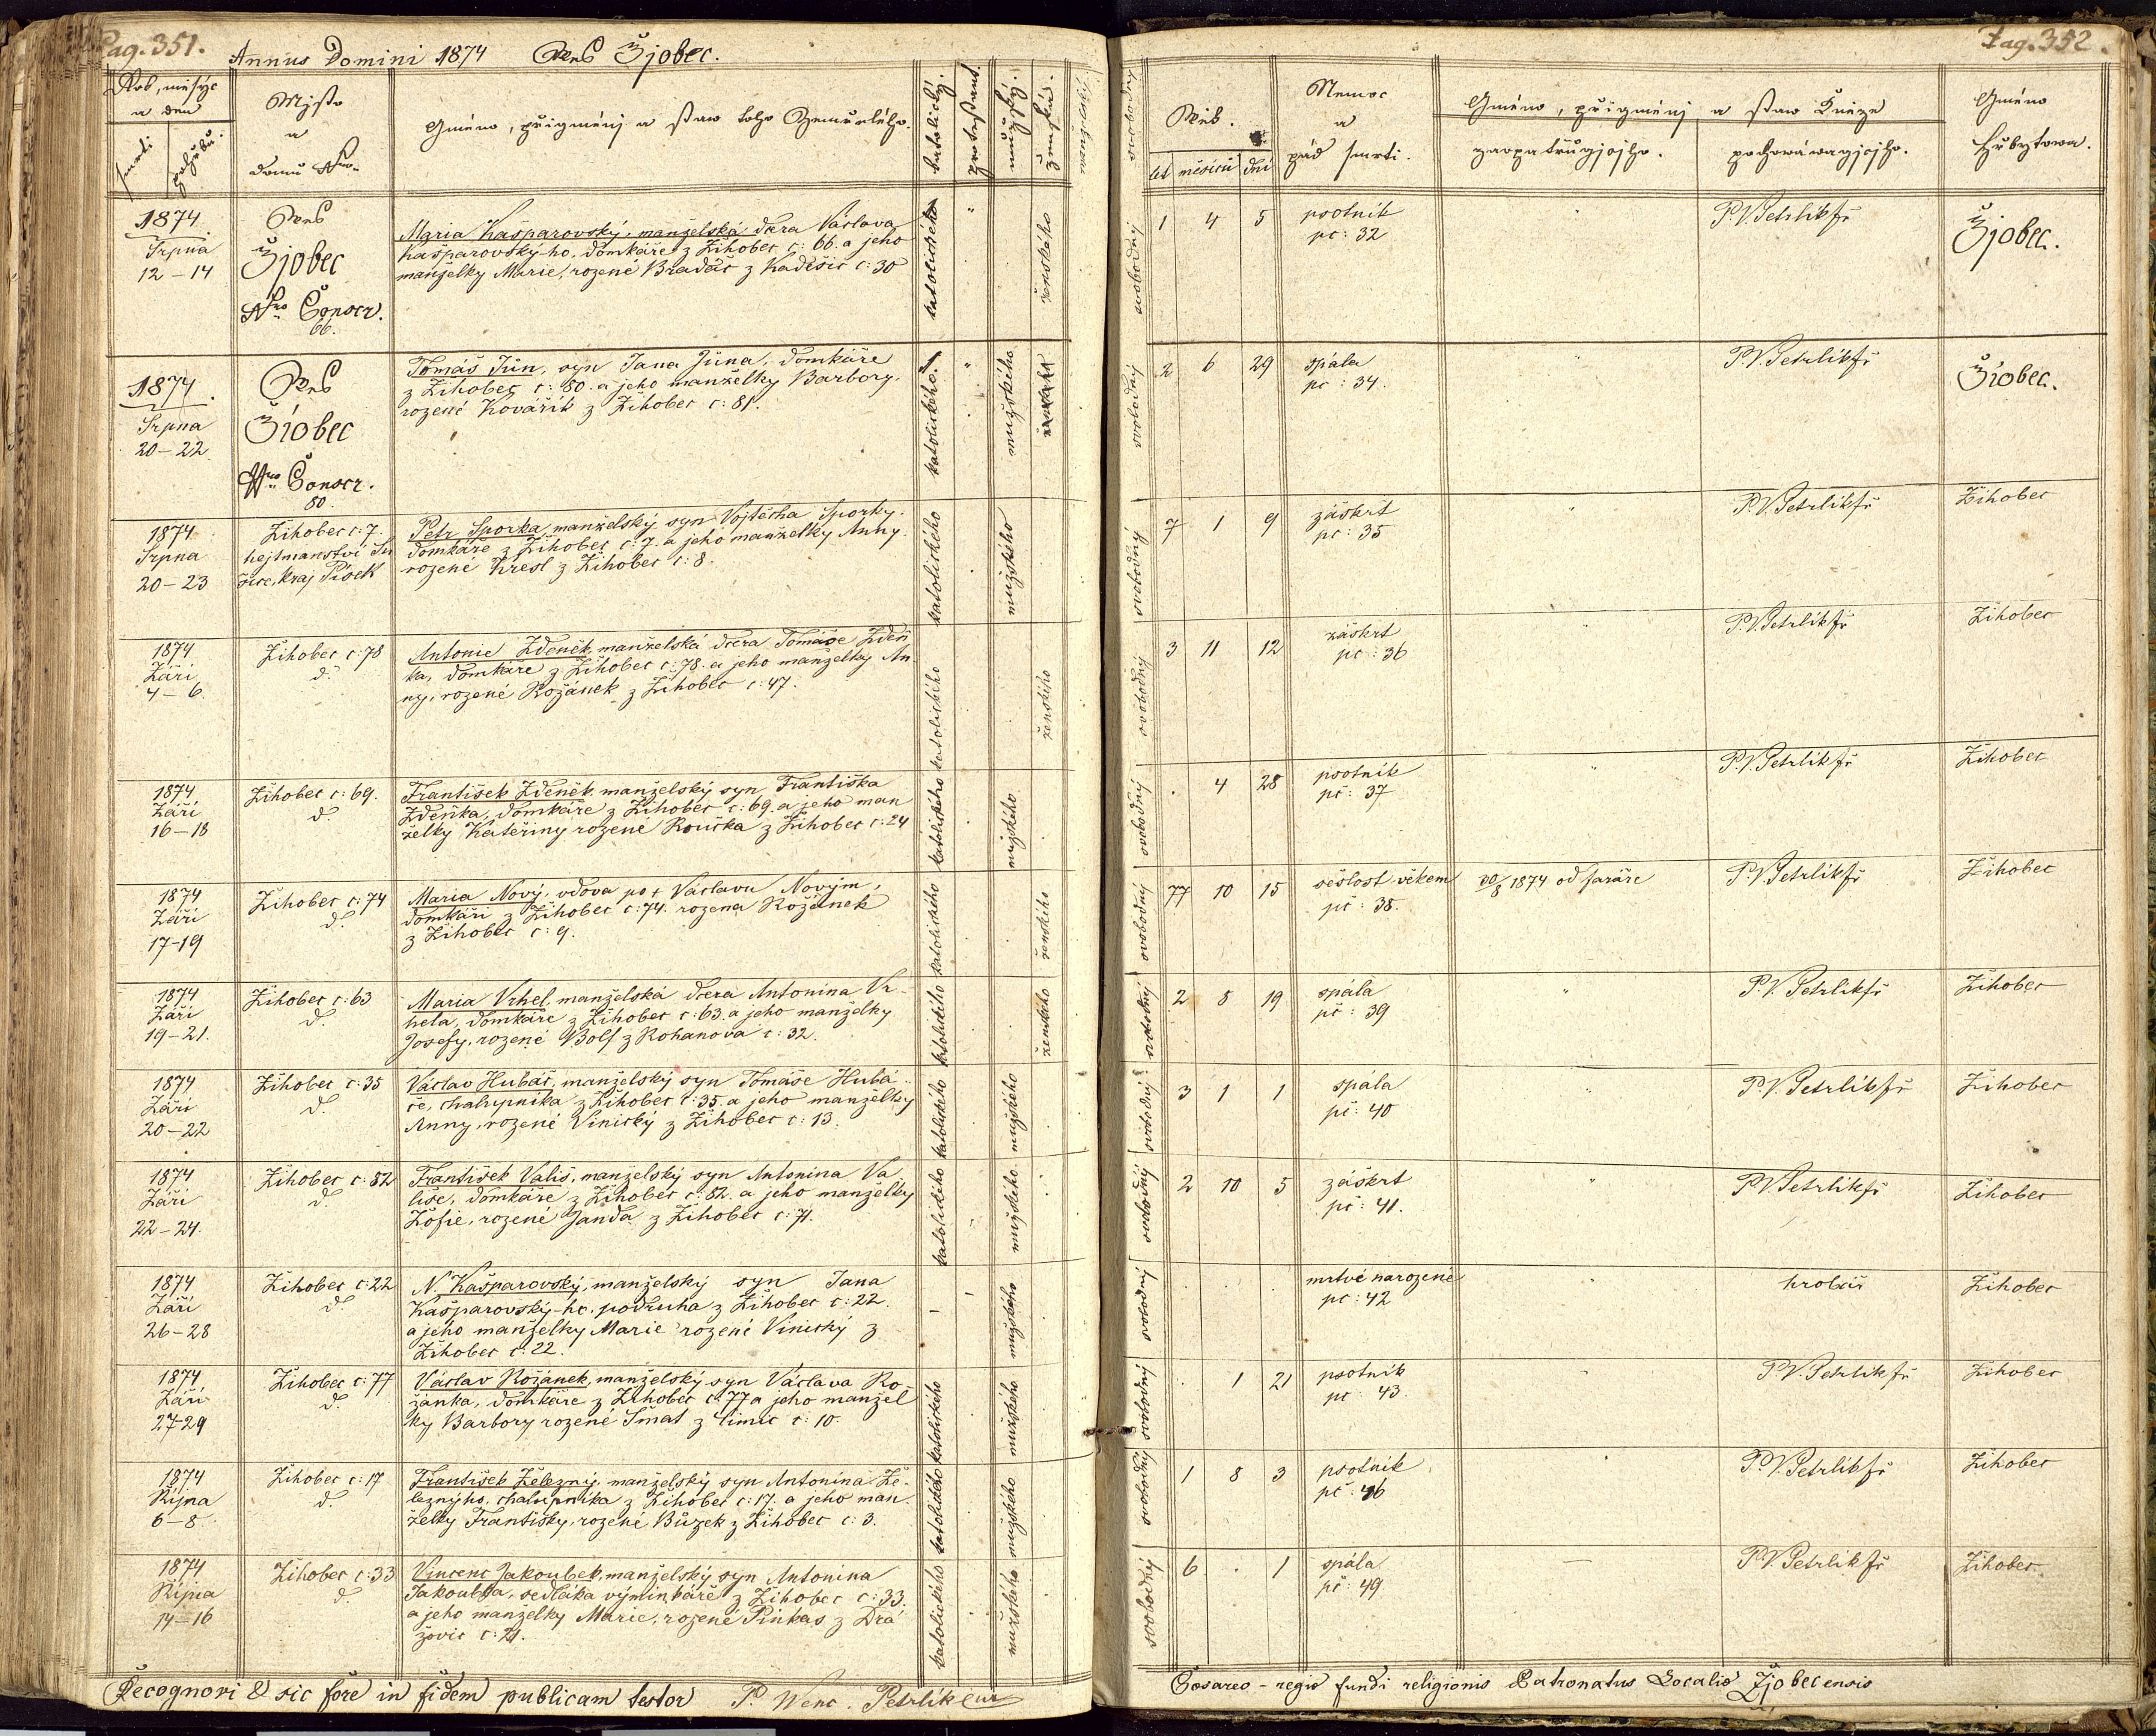 Pag. 351.
Annus Domini 1874 Ves Žjobec.
Rok, měsýc
a den
smrti
pohřbu
Mjsto
a
domu Nro.
Gméno, přigménj a staw toho Zemřelého.
katolický.
protestant.
mužský.
ženská.
1874
Srpna
12 – 14
Ves
Žjobec
Nro Conscr.
66.
Maria Kašparovský, manželská dcera Václava
Kašparovský-ho, domkáře z Žihobec č: 66. a jeho
manželky Marie, rozené Bradáč z Kadešic č: 30
katolického
ženského
1874.
Srpna
20 – 22.
Ves
Žiobec
Nro Conscr.
80.
Tomáš Jůn, syn Jana Jůna, domkáře
z Žihobec č: 80. a jeho manželky Barbory,
rozené Kovářík z Žihobec č: 81.
katolického
mužského
1874
Srpna
20 – 23
Žihobec č: 7
hejtmanství Su
šice, kraj Písek
Petr Sporka, manželský syn Vojtěcha Sporky,
domkáře z Žihobec č: 7. a jeho manželky Anny
rozené Kresl z Žihobec č: 8.
katolického
mužského
1874
Září
4 – 6.
Žihobec č: 78
d.
Antonie Zdeněk, manželská dcera Tomáše Zdeň
ka, domkáře z Žihobec č: 78. a jeho manželky An
ny, rozené Rožánek z Žihobec č: 47.
katolického
ženského
1874
Září
16 – 18
Žihobec č: 69.
d.
František Zdeněk, manželský syn Františka
Zdeňka, domkáře z Žihobec č: 69. a jeho man
želky Kateřiny rozené Roučka z Žihobec č: 24
katolického
mužského
1874
Září
17-19
Žihobec č: 74
d.
Maria Nový, vdova po † Václavu Novým,
domkáři z Žihobec č: 74. rozena Rožánek
z Žihobec č: 9.
katolického
ženského
1874
Září
19 – 21.
Žihobec č: 63
d.
Maria Vrhel, manželská dcera Antonina Vr-
hela, domkáře z Žihobec č: 63. a jeho manželky
Josefy, rozené Bolf z Rohanova č: 32.
katolického
ženského
1874
Září
20 – 22
Žihobec č: 35
d.
Václav Hubač, manželský syn Tomáše Hubá
če, chalupníka z Žihobec č: 35. a jeho manželky
Anny, rozené Vinický z Žihobec č: 13.
katolického
mužského
1874
Září
22 – 24.
Žihobec č: 82
d.
František Vališ, manželský syn Antonina Va
liše, domkáře z Žihobec č: 82. a jeho manželky
Žofie, rozené Janda z Žihobec č: 71.
katolického
mužského
1874
Září
26 – 28
Žihobec č: 22
d.
N. Kašparovský, manželský syn Jana
Kašparovský-ho, podruha z Žihobec č: 22.
a jeho manželky Marie rozené Vinický z
Žihobec č: 22.
mužského
1874
Září
27-29
Žihobec č: 77
d.
Václav Rožánek, manželský syn Václava Ro-
žánka, domkáře z Žihobec č: 77 a jeho manžel
ky Barbory rozené Šmat z Simic č: 10.
katolického
mužského
1874
Října
6 – 8
Žihobec č: 17
d.
František Železný, manželský syn Antonina Že-
leznýho, chalupníka z Žihobec č: 17. a jeho man-
želky Františky, rozené Bůzek z Žihobec č: 3.
katolického
mužského
1874
Října
14 – 16
Žihobec č: 33
d.
Vincenc Jakoubek, manželský syn Antonina
Jakoubka, sedláka výminkáře z Žihobec č: 33.
a jeho manželky Marie, rozené Pinkas z Dra
žovic č: 21.
katolického
mužského
Recognovi & sic fore in fidem publicam testor P. Wenc. Petrlík cur
Pag. 352.
svobodný
Věk.
let
měsíců
dní
Nemoc
a
pád smrti.
Gméno, přigménj a staw Kněze
zaopatřugjcjho.
pochowáwagjcjho.
Gméno
Hřbytowa.
svobodný
1 4 5
psotník
pč: 32
P. V. Petrlik fr
Žjobec.
svobodný
2 6 29
spála
pč: 34.
P. V. Petrlik fr
Žiobec.
svobodný
7 1 9
záškrt
pč: 35
P. V. Petrlik fr
Žihobec
svobodný
3 11 12
záškrt
pč: 36
P. V. Petrlik fr
Žihobec
svobodný
. 4 28
psotník
pč: 37
P. V. Petrlik fr
Žihobec
svobodný
77 10 15
sešlost věkem
pč: 38.
1874 od faráře
P. V. Petrlik fr
Žihobec
svobodný
2 8 19
spála
pč: 39
P. V. Petrlik fr
Žihobec
svobodný
3 1 1
spála
pč: 40
P. V. Petrlik fr
Žihobec
svobodný
2 10 5
záškrt
pč: 41.
P. V. Petrlik fr
Žihobec
svobodný
mrtvé narozené
pč: 42
hrobař
Žihobec
svobodný
. 1 21
psotník
pč: 43.
P. V. Petrlik fr
Žihobec
svobodný
1 8 3
psotník
pč: 46
P. V. Petrlik fr
Žihobec
svobodný
6 . 1
spála
pč: 49
P. V. Petrlik fr
Žihobec.
Cesareo - regio fundi religionis Patronatus Localis Zjobecensis